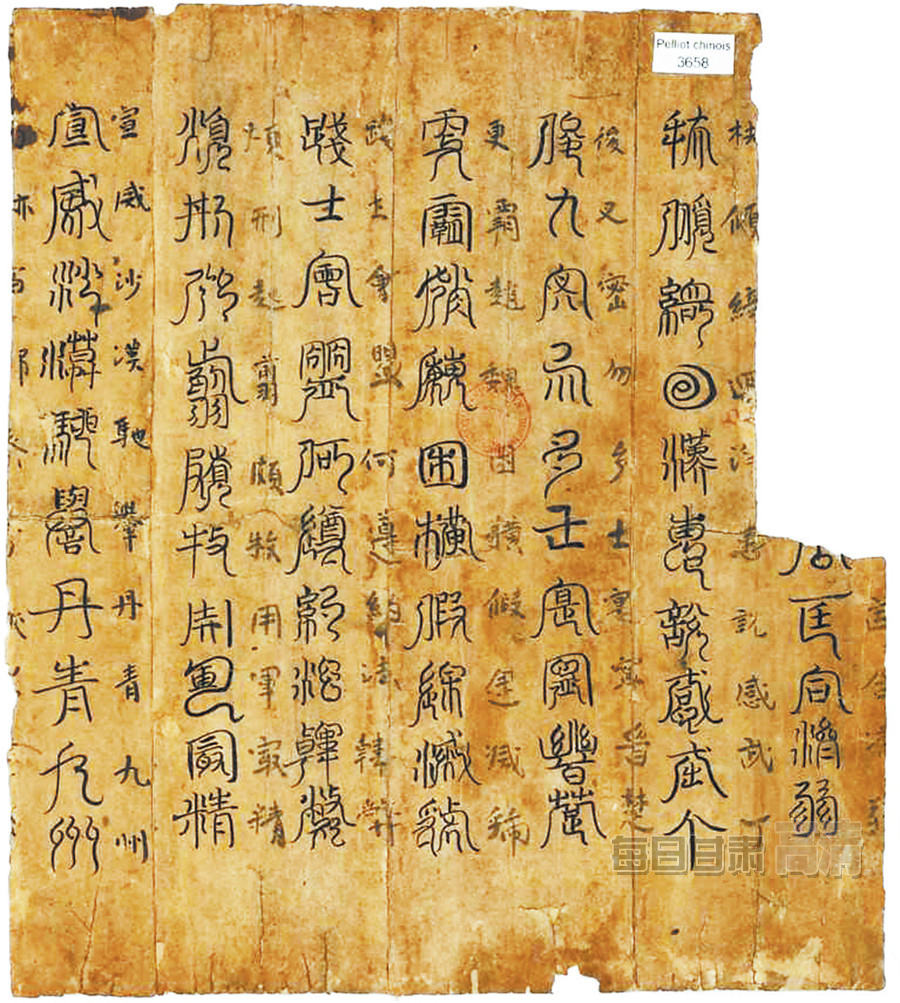 匡合濟弱
公匡合濟弱
扶傾綺迴漢惠說感武丁
扶傾綺回漢惠說感武丁
後又密勿多士寔寧晉楚
俊乂密勿多士寔寧晉楚
更霸趙魏困橫假途滅虢
更霸趙魏困橫假途滅虢
踐土會盟何遵約法韓弊
踐土會盟何遵約法韓弊
煩刑起翦頗牧用軍最精
煩刑起翦頗牧用軍最精
宣威沙漠馳譽丹青九州
宣威沙漠馳譽丹青九州
Pelliot chinois
3658
每日甘肃 高清